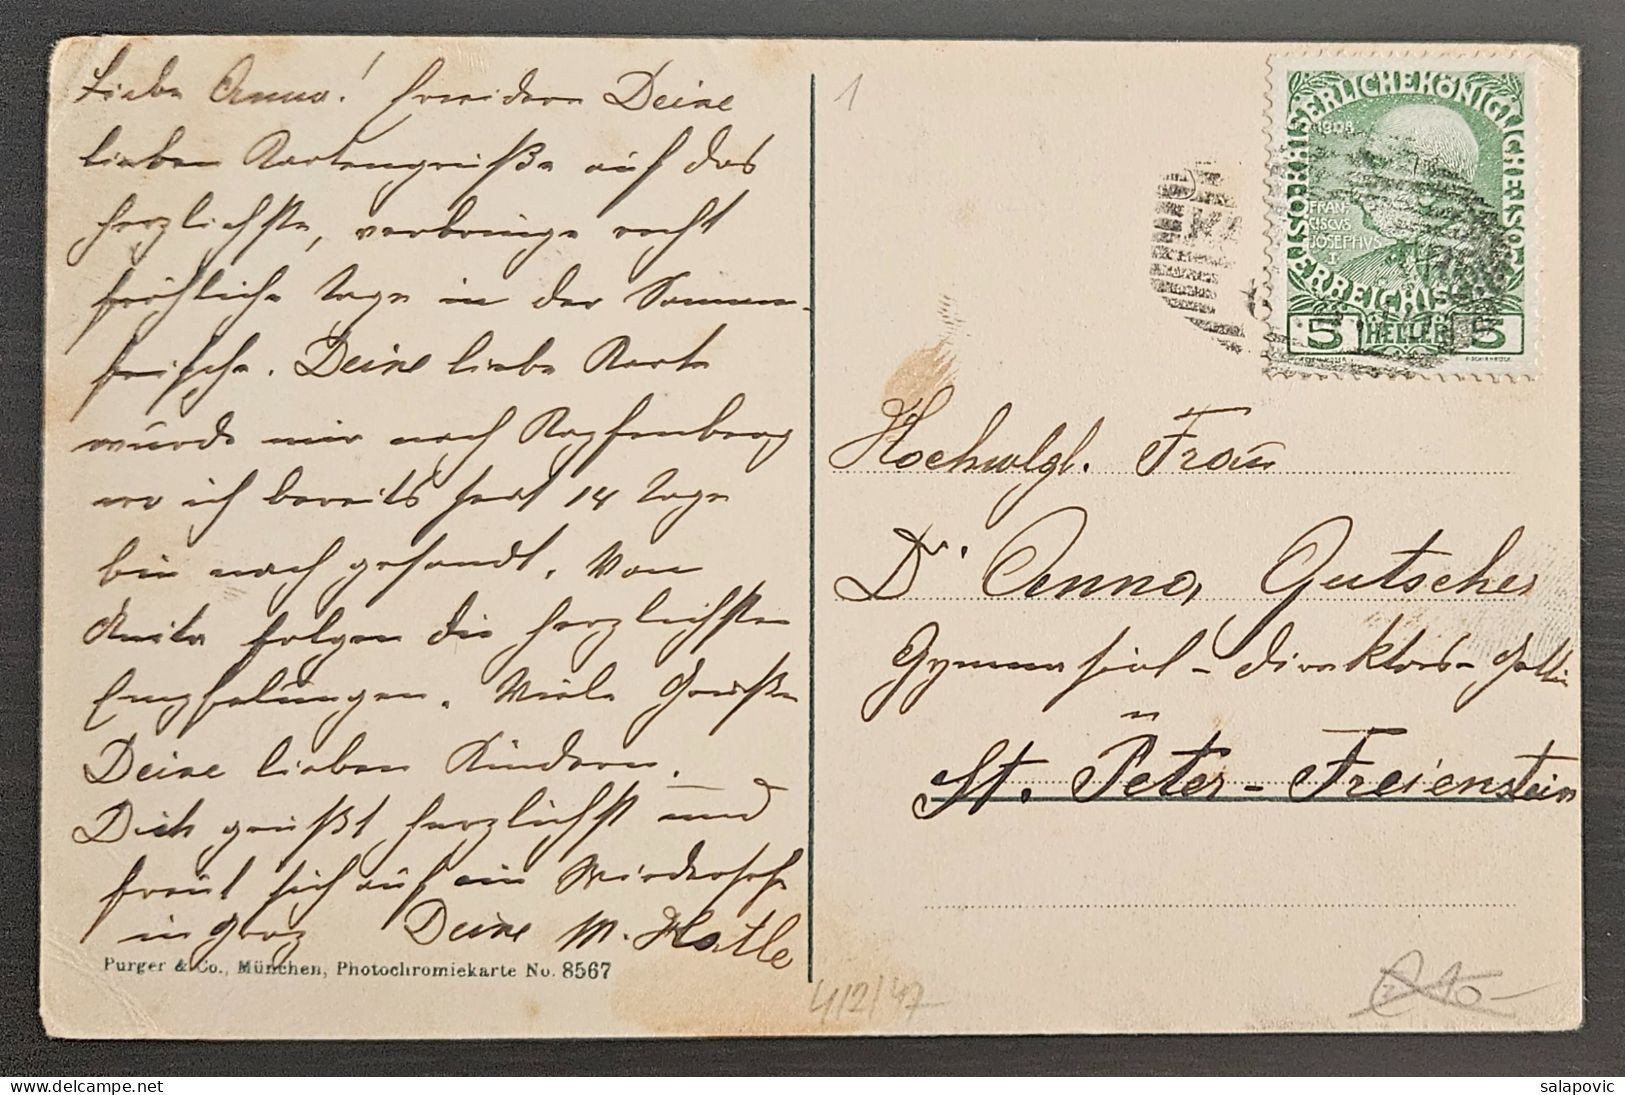 Liebe Anna! Erwidere Deine
lieben Kartengrüße auf das
herzlichste, verbringe recht
fröhliche Tage in der Sommer-
frische. Deine liebe Karte
wurde mir nach Kapfenberg
wo ich bereits seit 14 Tage
bin nach gesandt. Von
Anita folgen die herzlichsten
Empfelungen. Viele Grüße
Deine lieben Kindern.
Dich grüßt herzlichst und
freut sich auf ein Wiedersehn
in Graz Deine M. Hatle
Purger & Co., München, Photochromiekarte No. 8567
1
KAISERLICHEKÖNIGLICHE
ÖSTERREICHISCHE
1908
FRAN-
CISCVS
JOSEPHVS
I
5 HELLER 5
Hochwlgl. Frau
Dr. Anna Gutscher
Gymnasial-Direktors-Gattin
St. Peter-Freienstein
4/2/47
salapovic
delcampe.net